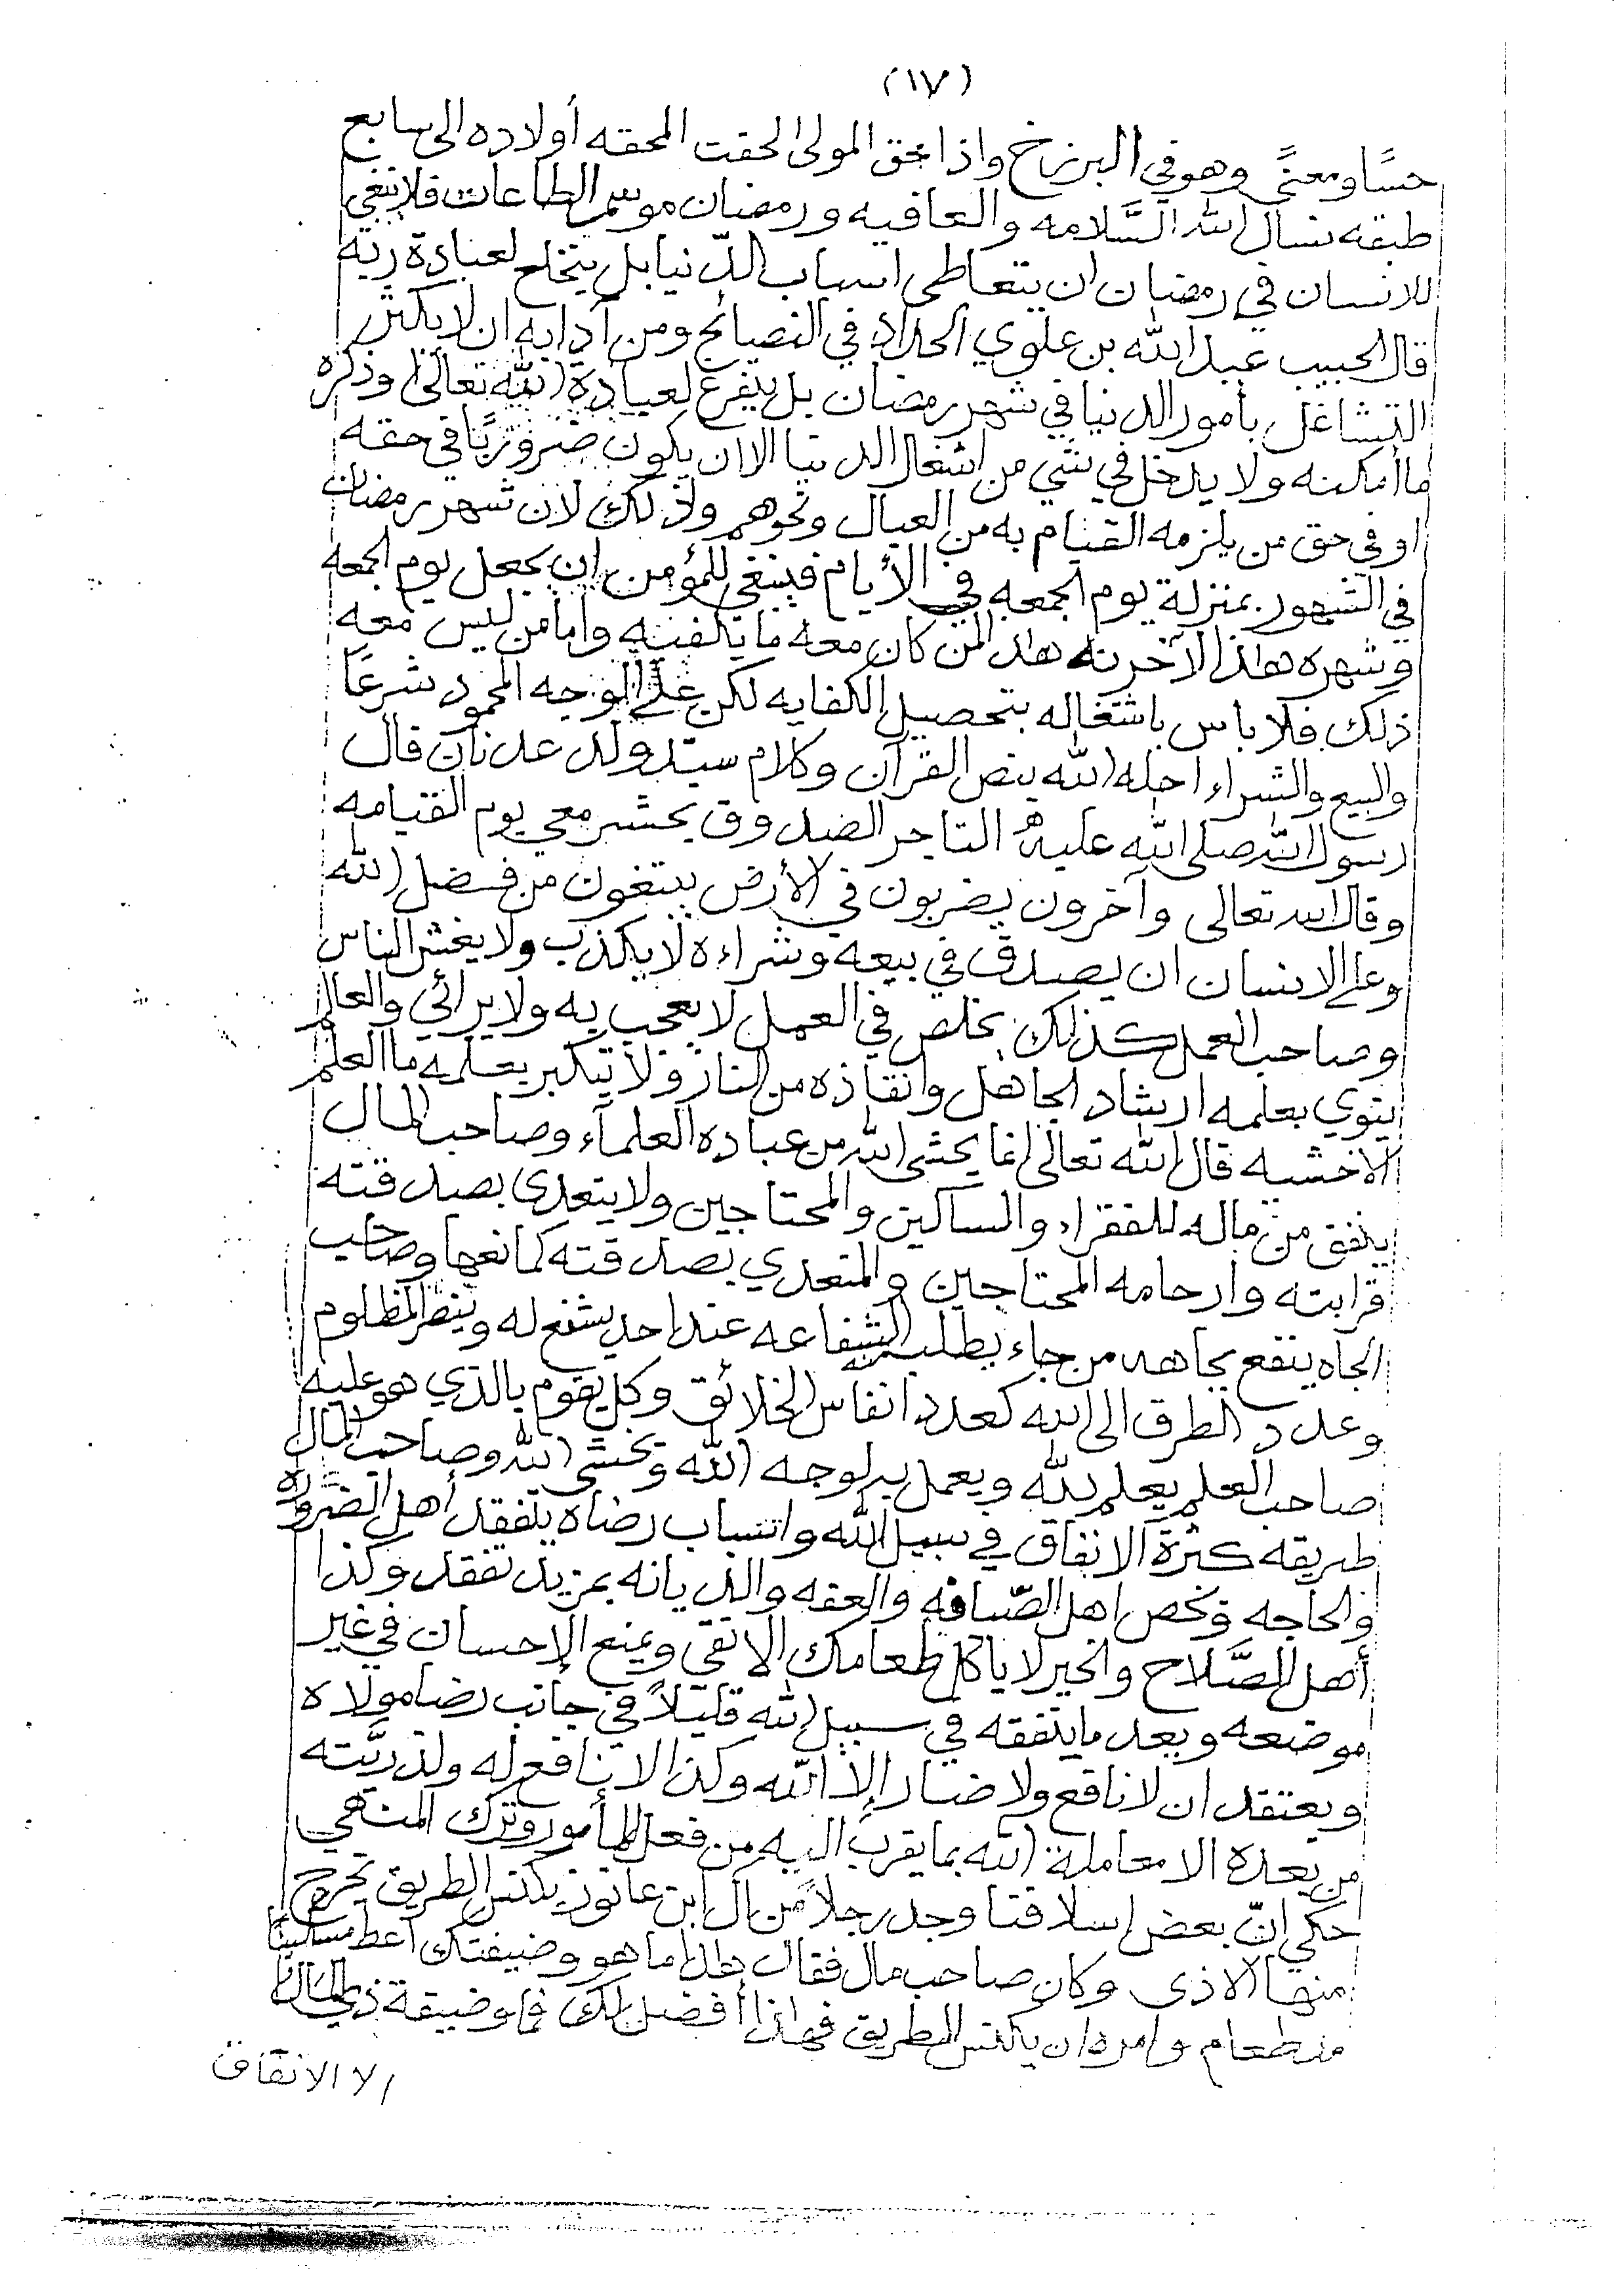 (١٧)
حسًا ومعنىً وهو في البرزخ واذا محق المولى الحقت المحقه أولاده الى سابع
طبقه نسال الله السَّلامه والعافيه ورمضان موسم الطاعات فلا ينبغي
للانسان في رمضان ان يتعاطى اسباب الدّنيا بل يتخلى لعبادة ربه
قال الحبيب عبد الله بن علوي الحداد في النصائح ومن آدابه ان لا يكثر
التشاغل بأمور الدنيا في شهر رمضان بل يتفرغ لعبادة الله تعالى وذكره
ما أمكنه ولا يدخل في شي من اشغال الدنيا الا ان يكون ضروريًا في حقه
او في حق من يلزمه القيام به من العيال ونحوهم وذلك لان شهر رمضان
في الشهور بمنزلة يوم الجمعه في الأيام فينبغي للمؤمن ان يجعل يوم الجمعه
وشهره هذا لآخرته هذا لمن كان معه ما يكفيه واما من ليس معه
ذلك فلا باس باشتغاله بتحصيل الكفايه لكن على الوجه المحمود شرعًا
والبيع والشراء احله الله بنص القرآن وكلام سيد ولد عدنان قال
رسول الله صلى الله عليه التاجر الصدوق يحشر معي يوم القيامه
وقال الله تعالى وآخرون يضربون في الأرض يبتغون من فضل الله
وعلى الانسان ان يصدق في بيعه وشراءه لا يكذب ولا يغش الناس
وصاحب العمل كذلك يخلص في العمل لا يعجب به ولا يرائي والعالم
ينوي بعلمه ارشاد الجاهل وانقاذه من النار ولا يتكبر بعلمه ما العلم
الا خشيه قال الله تعالى انما يخشى الله من عباده العلمآء وصاحب المال
ينفق من ماله للفقراء والمساكين والمحتاجين ولا يتعدى بصدقته
قرابته وارحامه المحتاجين والمتعدي بصدقته كمانعها وصاحب
الجاه ينفع بجاهه من جاء يطلب الشفاعه عند احد يشفع له وينصر المظلوم
وعدد الطرق الى الله كعدد انفاس الخلائق وكل يقوم بالذي هو عليه
صاحب العلم يعلم لله ويعمل به لوجه الله ويخشى الله وصاحب المال
طريقه كثرة الانفاق في سبيل الله واسباب رضاه يتفقد أهل الضروره
والحاجه ويخص اهل الصيانه والعفه والديانه بمزيد تفقد وكذا
أهل الصَّلاح والخير لا ياكل طعامك الا تقي ويمنع الإحسان في غير
موضعه ويعد ما ينفقه في سبيل الله قليلاً في جانب رضا مولاه
ويعتقد ان لا نافع ولا ضار إلا الله وكذا لا نافع له ولذريَّته
من بعده الا معاملة الله بما يقرب اليه من فعل المأمور وترك المنهي
حكي انّ بعض اسلافنا وجد رجلاً من ال ابن يكنس الطريق يخرج
منها الاذى وكان صاحب مال فقال هذا ما هو وضيفتك اعط مسكينًا
من طعام وامره ان يكنس الطريق فهاذا أفضل لك فما وضيفة ذي المال
الا الانفاق